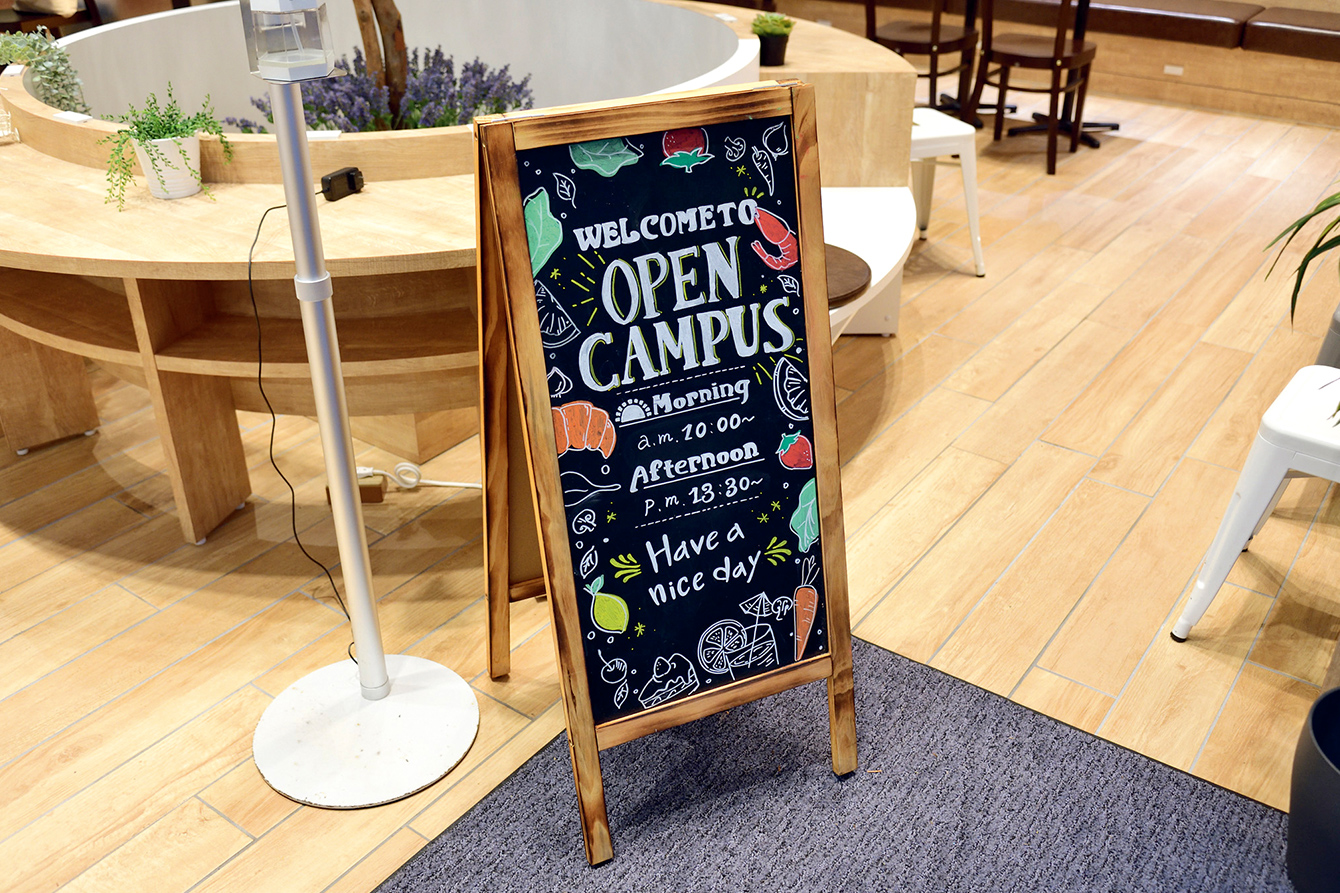 WELCOME TO
OPEN
CAMPUS
Morning
a.m. 10:00~
Afternoon
p.m. 13:30~
Have a
nice day